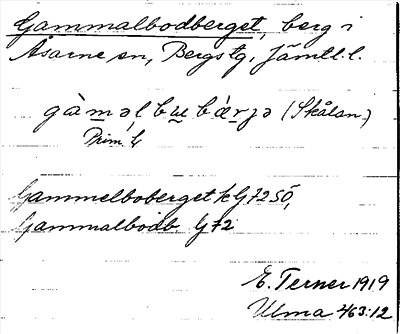 Gammalbodberget, berg i
Åsarne sn, Bergs tg, Jämtl. l.
gàmǝl bu̲ bæ̀rjǝ (Skålan)
Prim. l
Gammelboberget k G 72 SÖ,
Gammalbodb. G 72
E. Terner 1919
Ulma 463:12